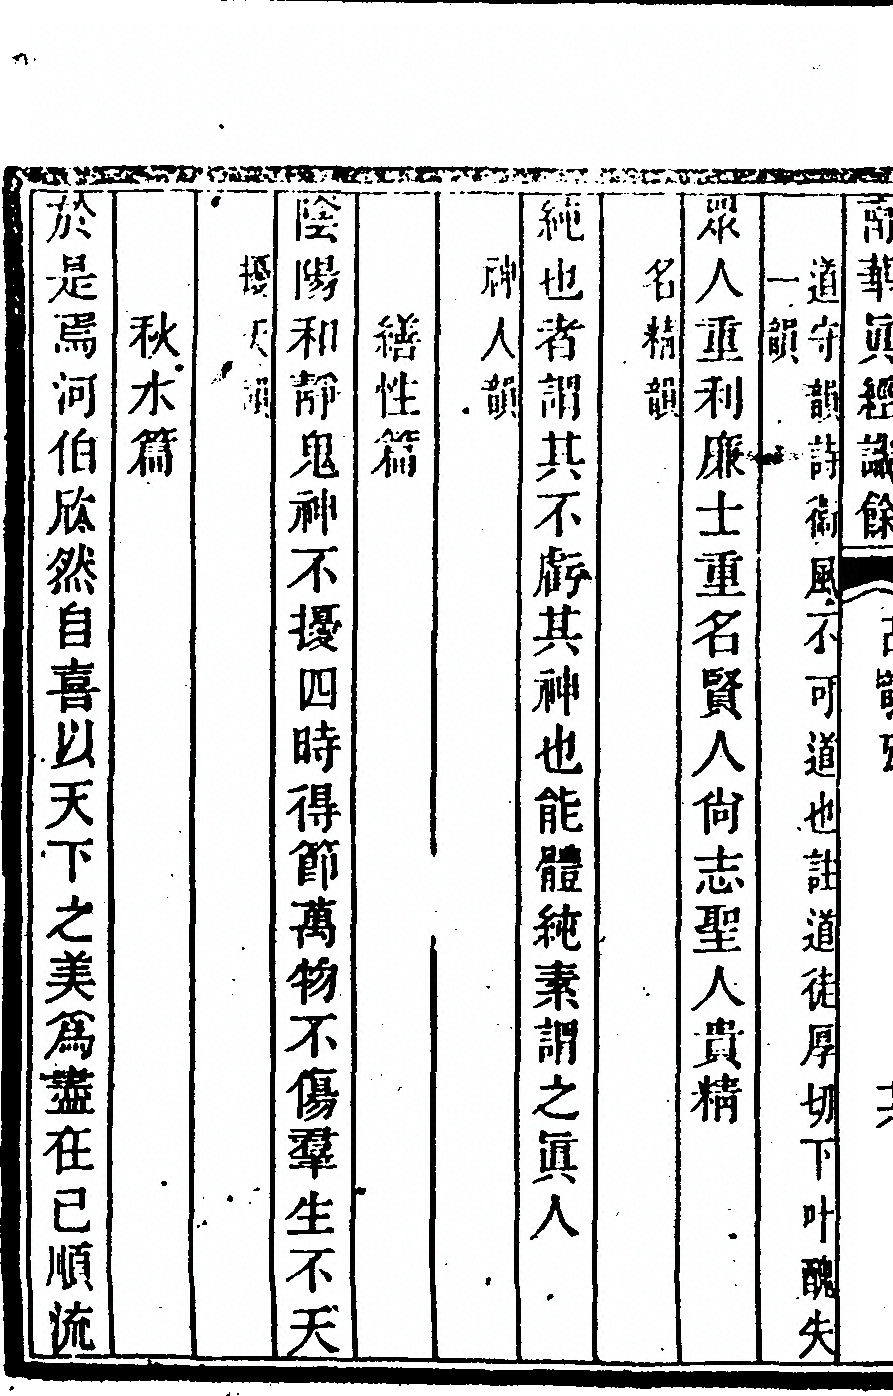 南華眞經識餘
道守韻詩衞風不可道也註道徒厚切下叶醜失
一韻
眾人重利廉士重名賢人尙志聖人貴精
名精韻
純也者謂其不虧其神也能體純素謂之眞人
神人韻
繕性篇
陰陽和靜鬼神不擾四時得節萬物不傷羣生不夭
擾夭韻
秋水篇
於是焉河伯欣然自喜以天下之美爲盡在已順流